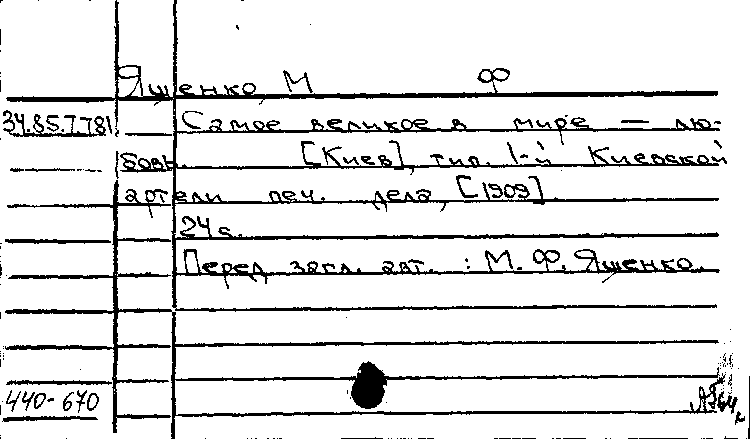 Ященко, М Ф
34.85.7.781 Самое великое в мире — лю-
бовь. [Киев], тип. 1-й Киевской
артели печ. дела, [1909]
24 с.
Перед загл. авт. : М. Ф. Ященко.
440-670